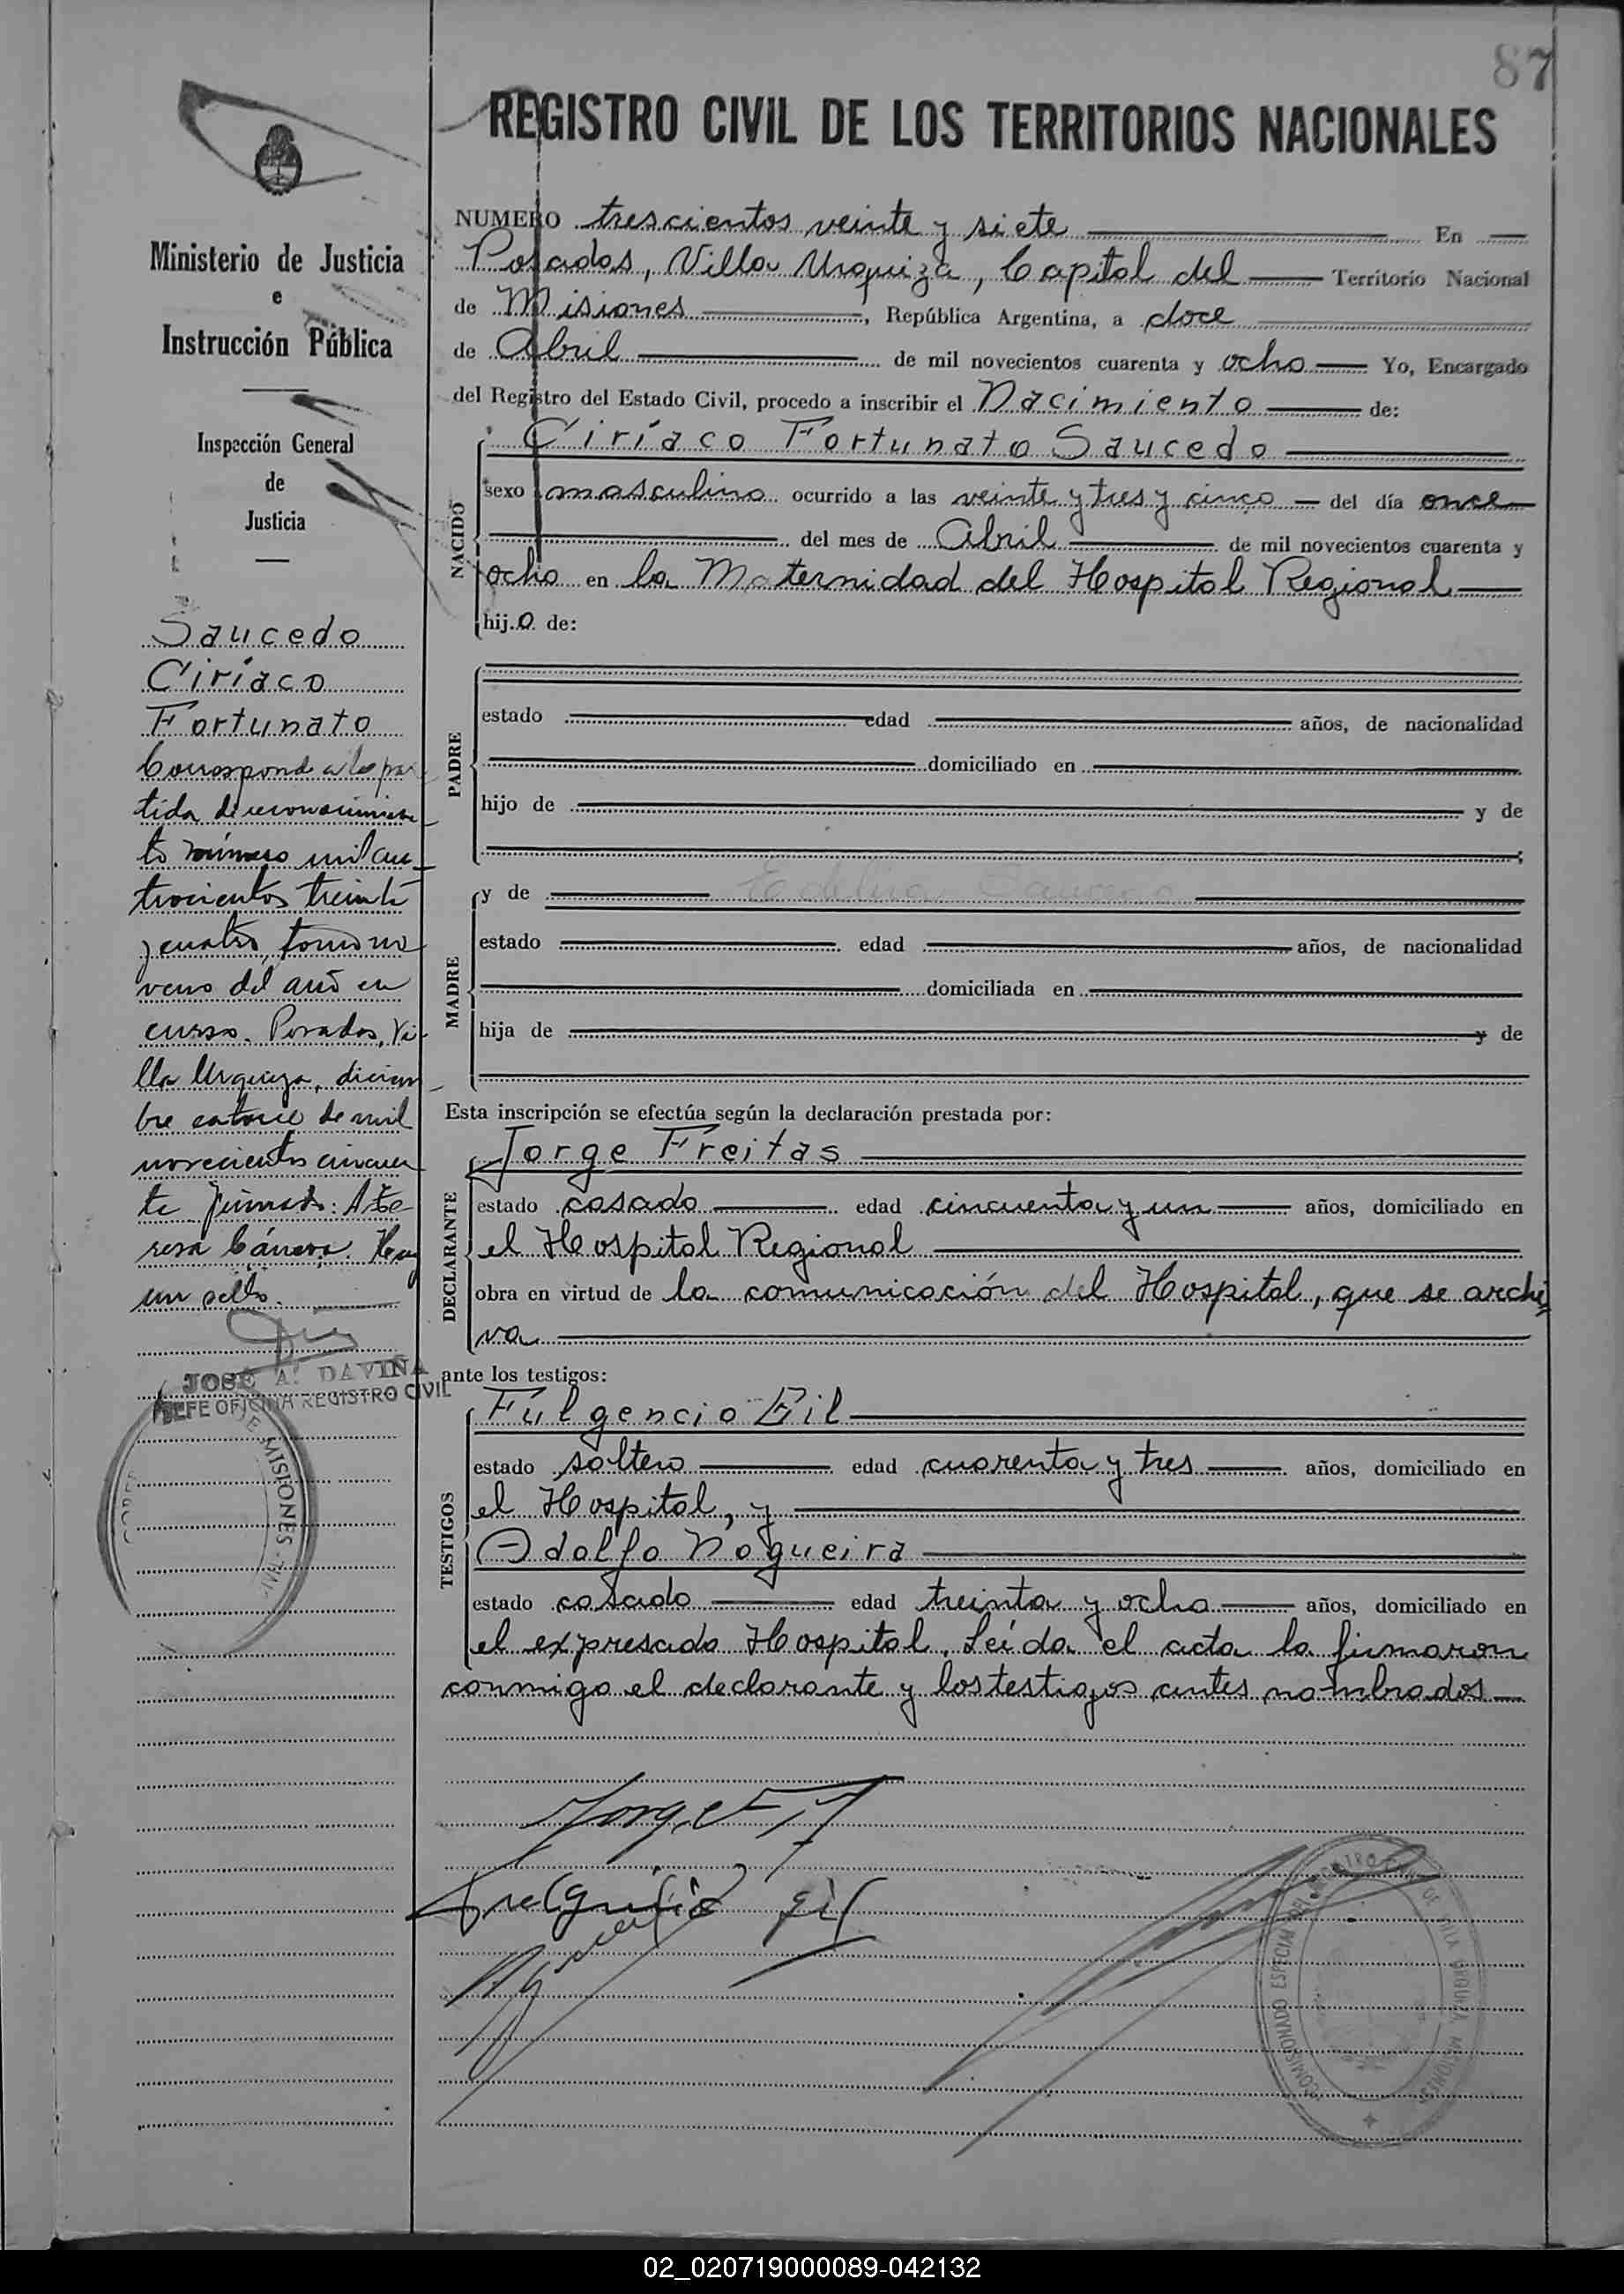 87
REGISTRO CIVIL DE LOS TERRITORIOS NACIONALES
Ministerio de Justicia
e
Instrucción Pública
Inspección General
de
Justicia
Saucedo
Ciríaco
Fortunato
Correspond a la par
tida de reconocimien
to número mil cua
trocientos treinta
y cuatro, tomo no
veno del año en
curso. Posadas, Vi-
lla Urquiza, diciem
bre catorce de mil
novecientos cincuen
ta Firmado:
Hay
un sello.
JOSÉ A. DAVIÑA
JEFE OFICINA REGISTRO CIVIL
MISIONES
NUMERO trescientos veinte y siete En
Posadas, Villa Urquiza, Capital del Territorio Nacional
de Misiones, República Argentina, a doce
de Abril de mil novecientos cuarenta y ocho Yo, Encargado
del Registro del Estado Civil, procedo a inscribir el Nacimiento de:
Ciríaco Fortunato Saucedo
NACIDO
sexo masculino ocurrido a las veinte y tres y cinco del día once
del mes de Abril de mil novecientos cuarenta y
ocho en la Maternidad del Hospital Regional
hijo de:
PADRE
estado edad años, de nacionalidad
domiciliado en
hijo de y de
MADRE
y de Saucedo
estado edad años, de nacionalidad
domiciliada en
hija de y de
Esta inscripción se efectúa según la declaración prestada por:
DECLARANTE
Jorge Freitas
estado casado edad cincuenta y un años, domiciliado en
el Hospital Regional
obra en virtud de la comunicación del Hospital, que se archi=
va
ante los testigos:
TESTIGOS
Fulgencio Gil
estado soltero edad cuarenta y tres años, domiciliado en
el Hospital, y
Adolfo Nogueira
estado casado edad treinta y ocho años, domiciliado en
el expresado Hospital. Leída el acta la firmaron
conmigo el declarante y los testigos antes nombrados
Jorge F
Fulgencio gil
COMISIONADO ESPECIAL DEL REGISTRO CIVIL DE VILLA URQUIZA MISIONES
02_020719000089-042132